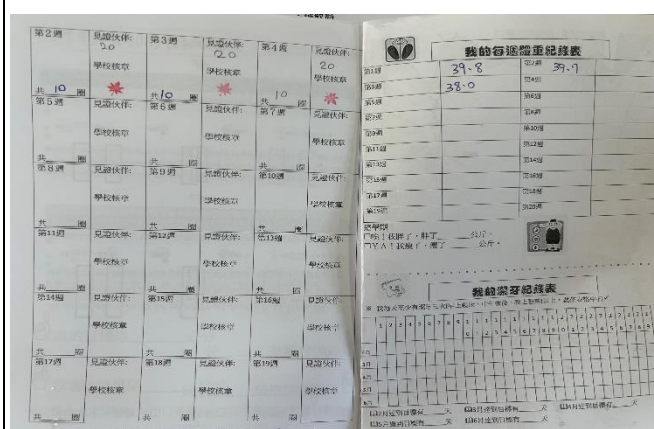 第2週 見證伙伴: 第3週 見證伙伴: 第4週 見證伙伴:
20 20 20
學校核章 學校核章 學校核章
共 10 圈 共 10 圈 共 10 圈
第5週 見證伙伴: 第6週 見證伙伴: 第7週 見證伙伴:
學校核章 學校核章 學校核章
共 圈 共 圈 共 圈
第8週 見證伙伴: 第9週 見證伙伴: 第10週 見證伙伴:
學校核章 學校核章 學校核章
共 圈 共 圈 共 圈
第11週 見證伙伴: 第12週 見證伙伴: 第13週 見證伙伴:
學校核章 學校核章 學校核章
共 圈 共 圈 共 圈
第14週 見證伙伴: 第15週 見證伙伴: 第16週 見證伙伴:
學校核章 學校核章 學校核章
共 圈 共 圈 共 圈
第17週 見證伙伴: 第18週 見證伙伴: 第19週 見證伙伴:
學校核章 學校核章 學校核章
共 圈 共 圈 共 圈
我的每週體重紀錄表
第1週 39.8 第2週 39.7
第3週 38.0 第4週
第5週 第6週
第7週 第8週
第9週 第10週
第11週 第12週
第13週 第14週
第15週 第16週
第17週 第18週
第19週 第20週
這學期
我胖了,胖了 公斤。
YA!我瘦了,瘦了 公斤。
我的潔牙紀錄表